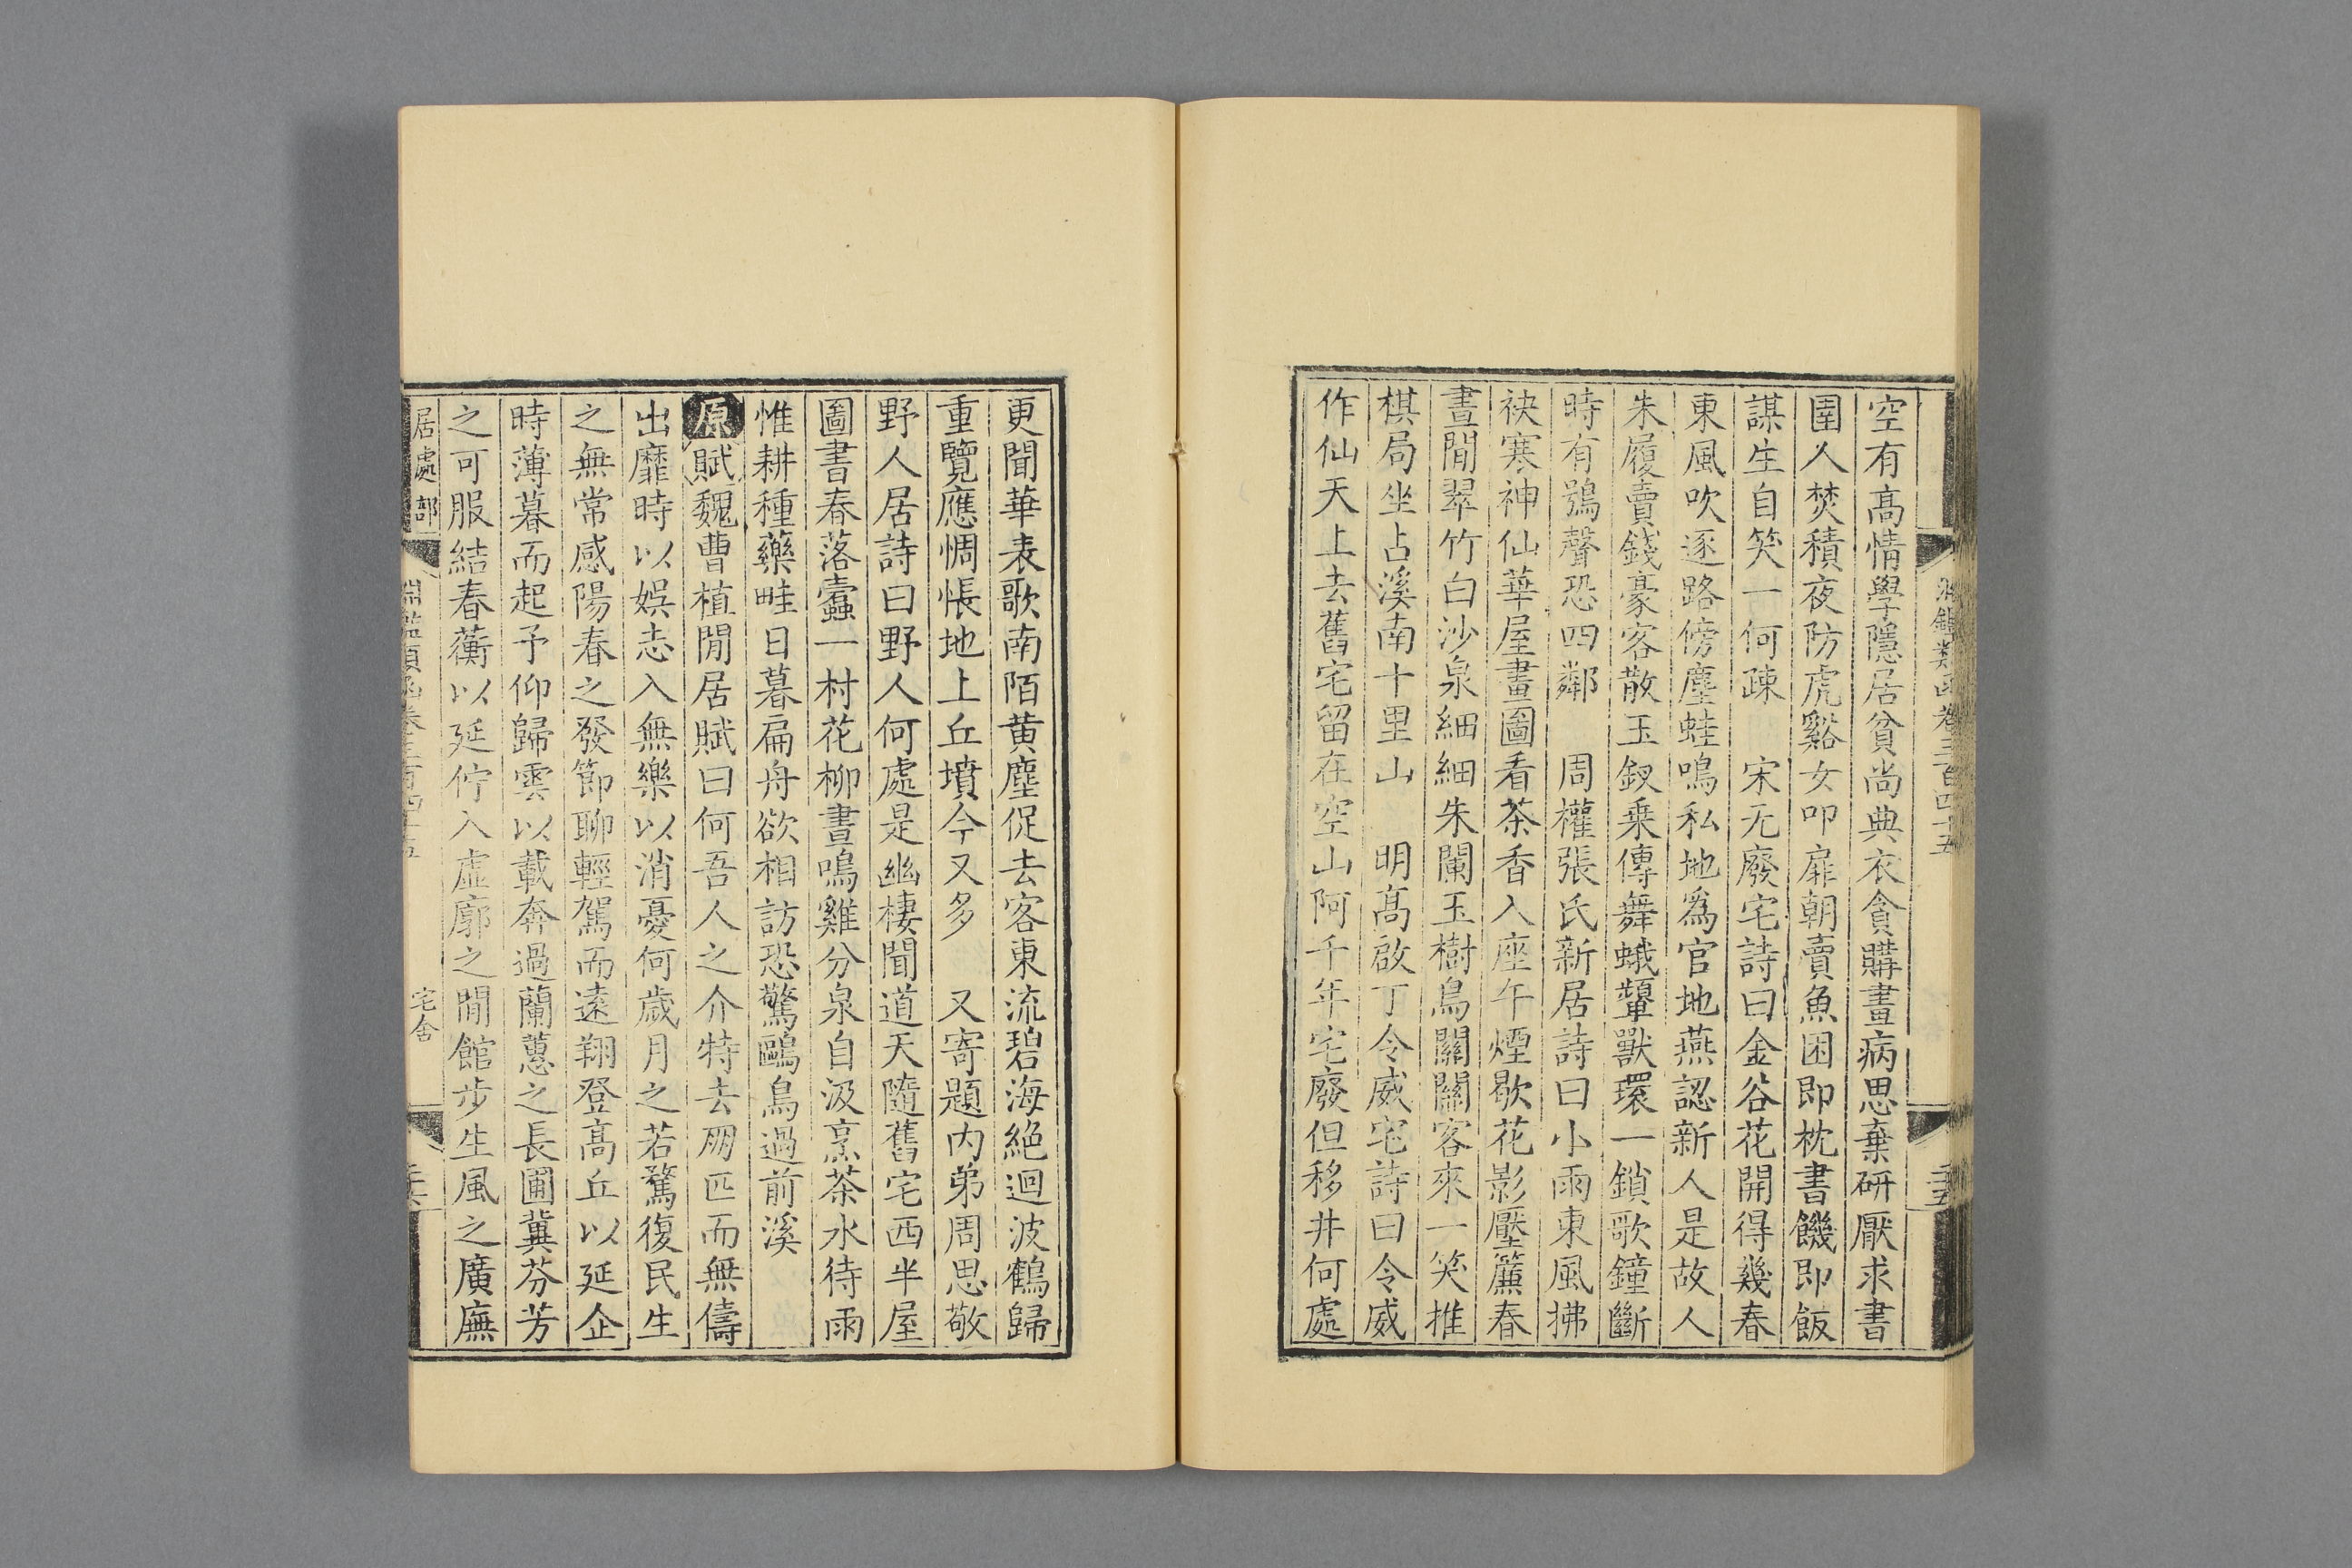 淵鑑類函卷三百四十五
二十五
空有高情學隱居貧尚典衣貪購畫病思棄研厭求書
園人焚積夜防虎谿女叩扉朝賣魚困即枕書饑即飯
謀生自笑一何疎　宋无廢宅詩曰金谷花開得幾春
東風吹逐路傍塵蛙鳴私地爲官地燕認新人是故人
朱履賣錢豪客散玉釵乗傳舞蛾顰獸環一鎖歌鐘斷
時有鴞聲恐四鄰　周權張氏新居詩曰小雨東風拂
袂寒神仙華屋畫圖看茶香入座午煙歇花影壓簾春
晝閒翠竹白沙泉細細朱闌玉樹鳥關關客來一笑推
棋局坐占溪南十里山　明高啟丁令威宅詩曰令威
作仙天上去舊宅留在空山阿千年宅廢但移井何處
更聞華表歌南陌黄塵促去客東流碧海絶迴波鶴歸
重覽應惆悵地上丘墳今又多　又寄題内弟周思敬
野人居詩曰野人何處是幽棲聞道天隨舊宅西半屋
圖書春落蠹一村花柳晝鳴雞分泉自汲烹茶水待雨
惟耕種藥畦日暮扁舟欲相訪恐驚鷗鳥過前溪
原賦魏曹植閒居賦曰何吾人之介特去朋匹而無儔
出靡時以娛志入無樂以消憂何歲月之若騖復民生
之無常感陽春之發節聊輕駕而遠翔登高丘以延企
時薄暮而起予仰歸雲以載奔過蘭蕙之長圃冀芬芳
之可服結春蘅以延佇入虛廓之閒館步生風之廣廡
居處部
淵鑑類函卷三百四十五
宅舍
二十六